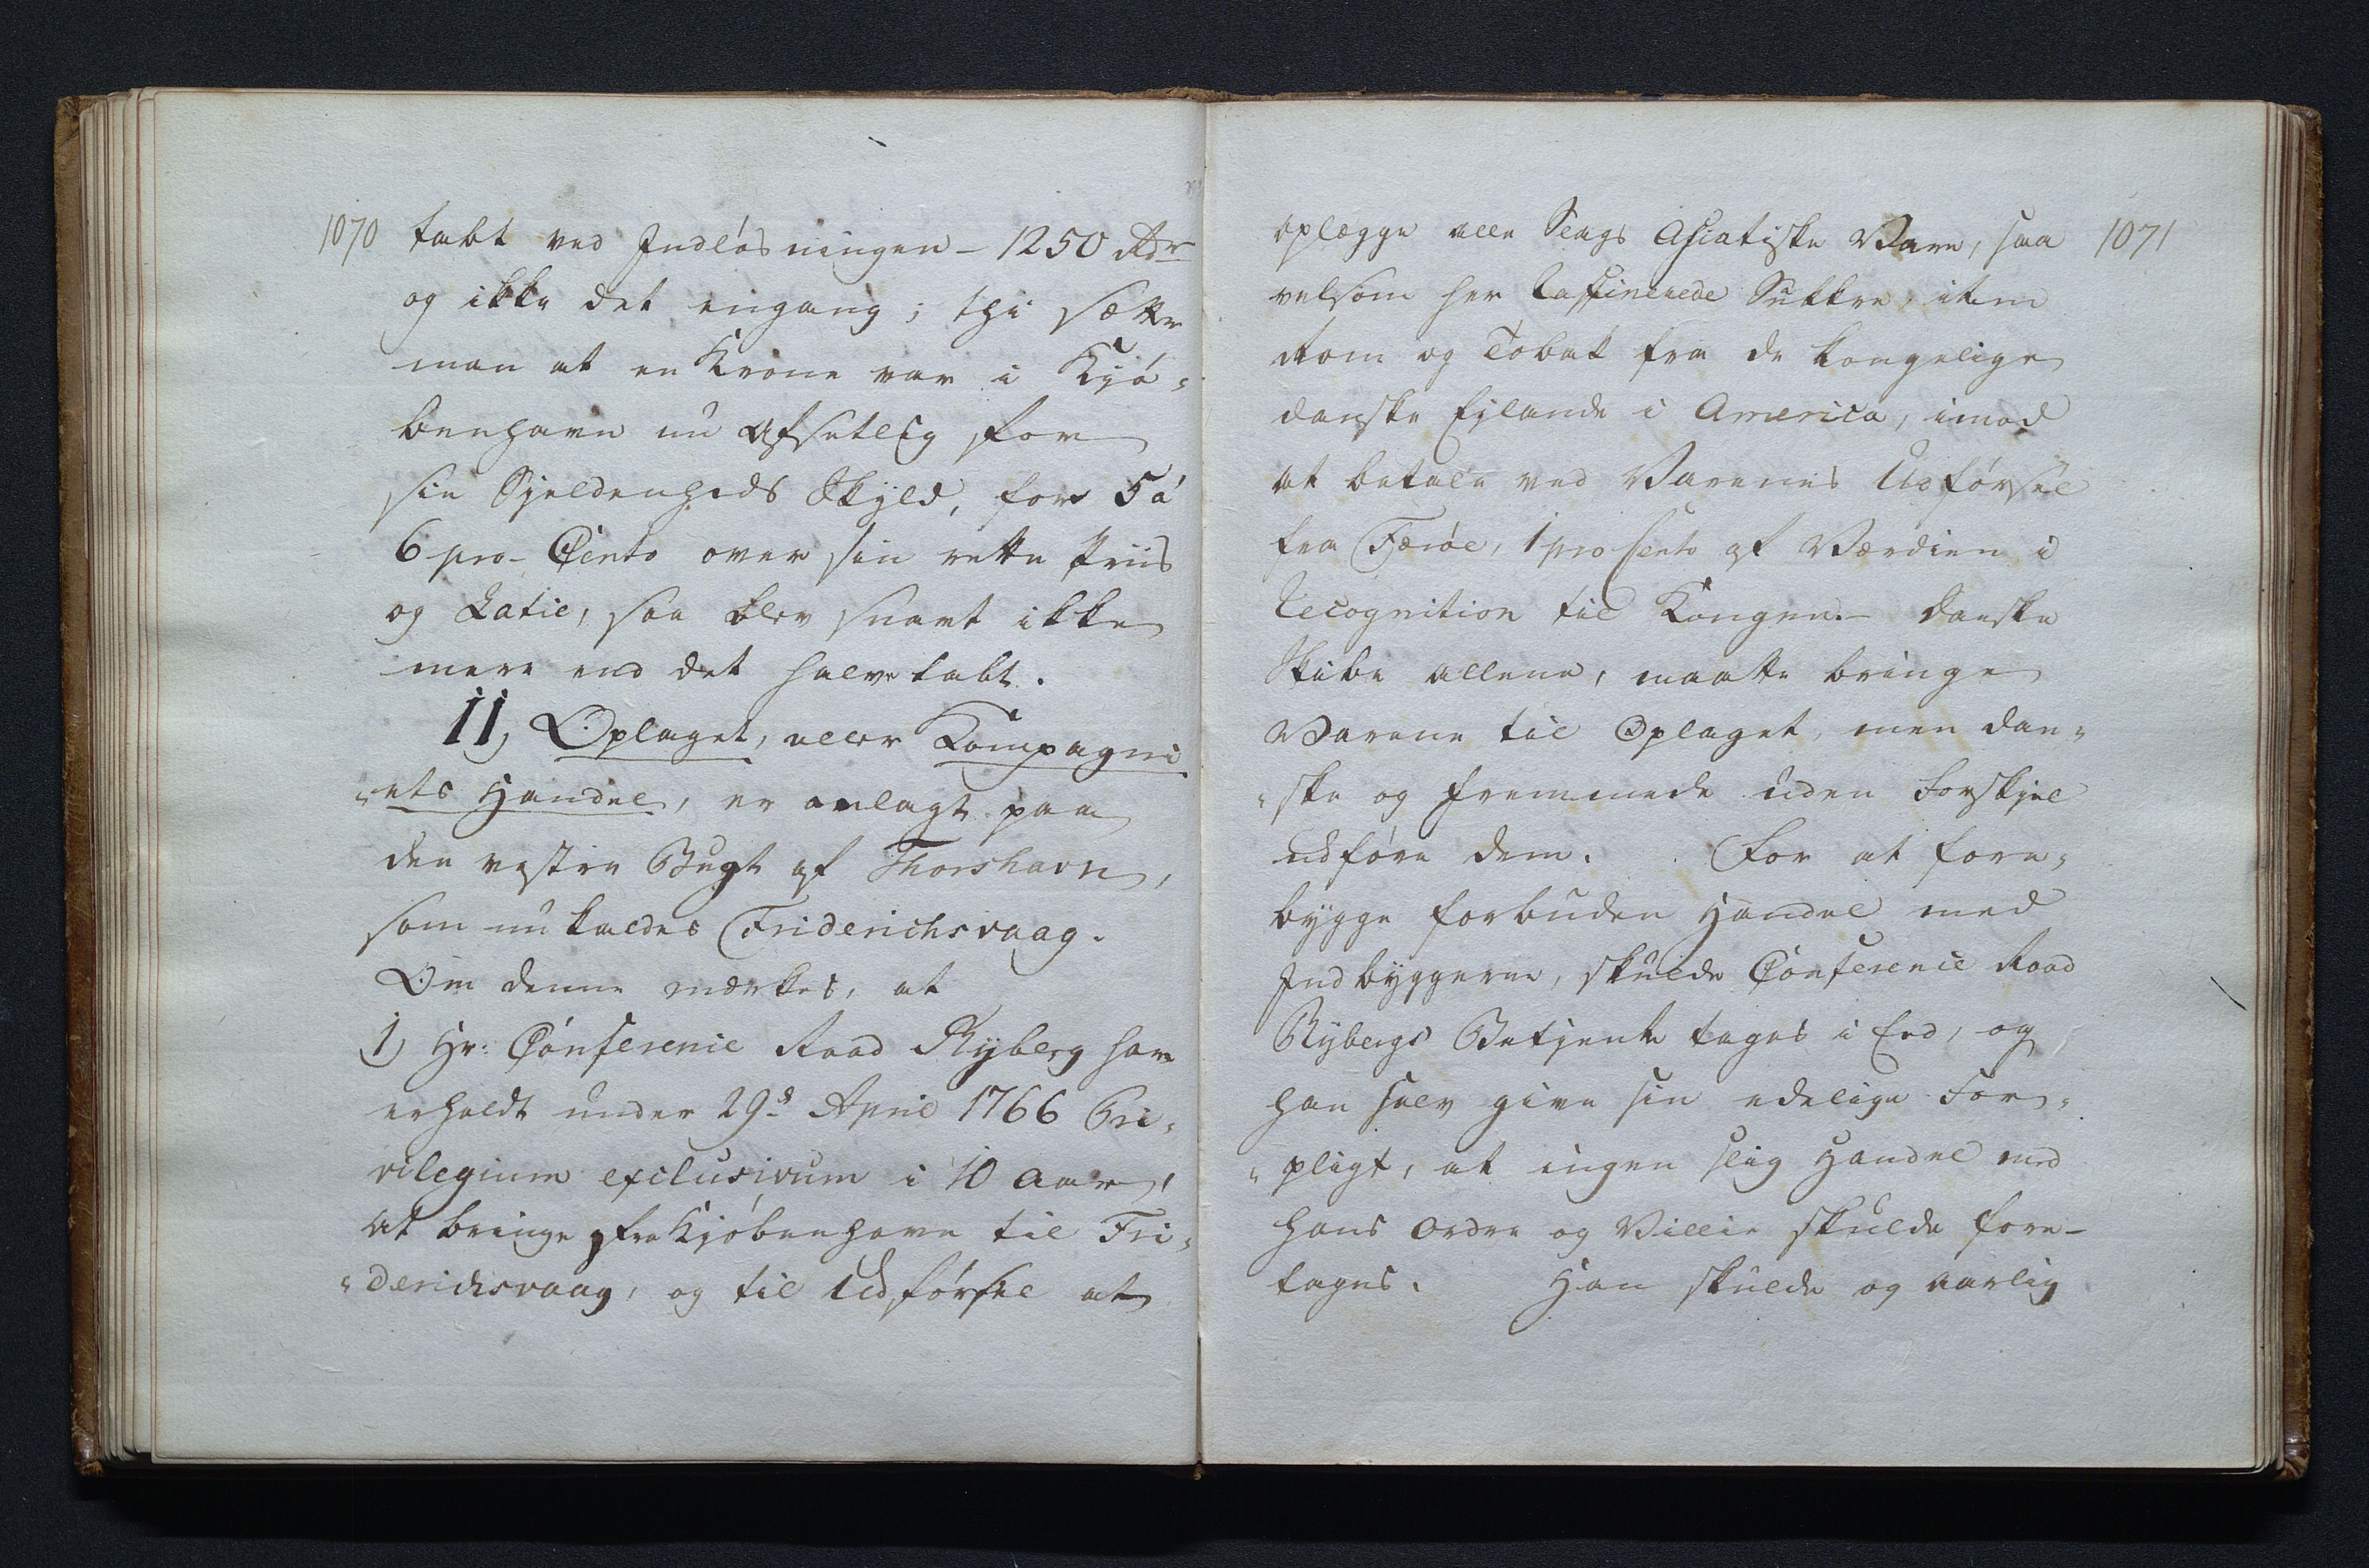 1070
tabt ved Indløsningen – 1250 Rdr
og ikke det engang; thi sætter
man at en Krone var i Kjø¸
benhavn nu afsetlig for
sin Sjeldenheds Skyld, for 5 á
6 pro-Cento over sin rette Priis
og Latie, saa blev snart ikke
mere end det halve tabt.
II, Oplaget, eller Kompagni
„ets Handel, er anlagt paa
den vestre Bugt af Thorshavn,
som nu kaldes Friderichsvaag.
Om denne mærkes, at
1, Hr: Conference Raad Ryberg har
erholdt under 29s April 1766 Pri¸
vilegium exclusivum i 10 Aar,
at bringe fra Kjøbenhavn til Fri¸
„derichsvaag, og til Udførsel at
1071
oplægge alle Slags Asiatiske Vare, saa
velsom her raffinerede Sukkre, item
Rom og Tobak fra de kongelige
danske Eylande i America, imod
at betale ved Varenes Udførsel
fra Færøe, 1 pro Cento af Værdien i
Recognition til Kongen. – Danske
Skibe allene, maatte bringe
Varene til Oplaget, men dan¸
„ske og fremmede uden Forskjel
udføre dem. For at fore¸
bygge forbuden Handel med
Indbyggerne, skulde Conference Raad
Rybergs Betjente tages i Eed, og
han selv give sin edelige For¸
„pligt, at ingen slig Handel med
hans Ordre og Villie skulde fore-
tages. Han skulde og aarlig